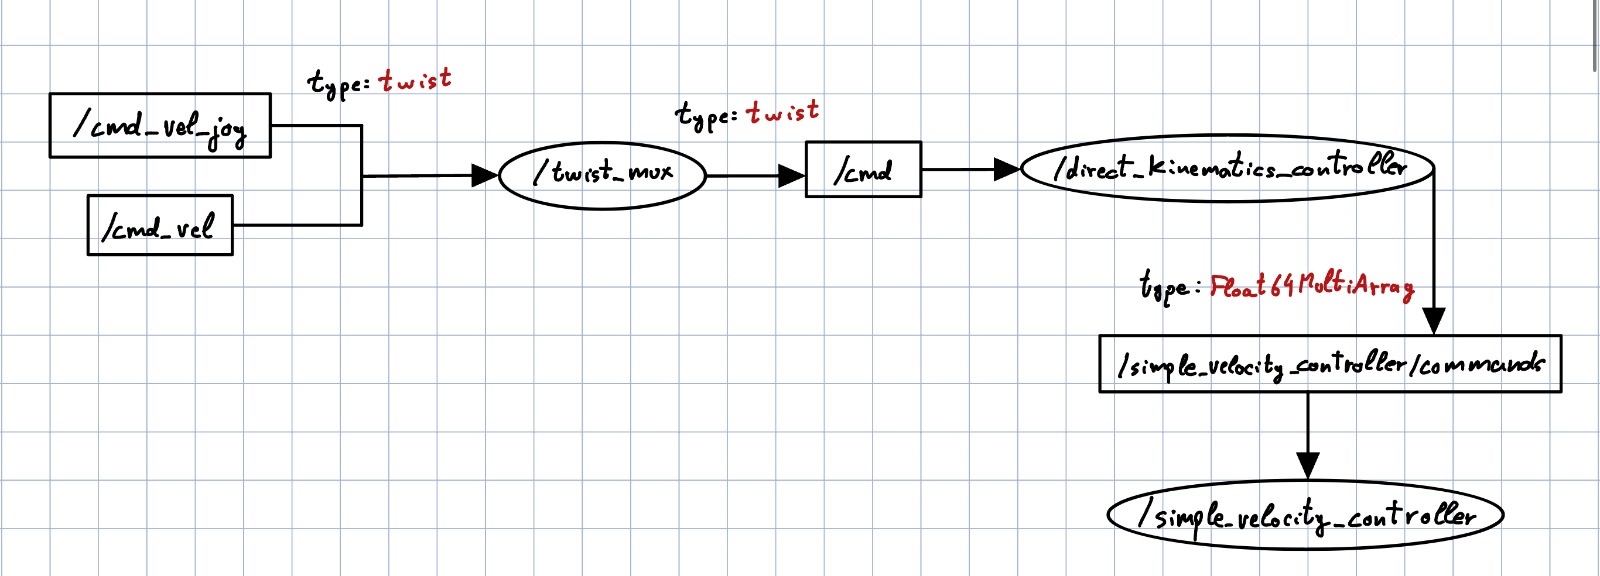 type: twist
/cmd_vel_joy
type: twist
/twist_mux
/cmd
/direct_kinematics_controller
/cmd_vel
type: Float64MultiArray
/simple_velocity_controller/commands
/simple_velocity_controller